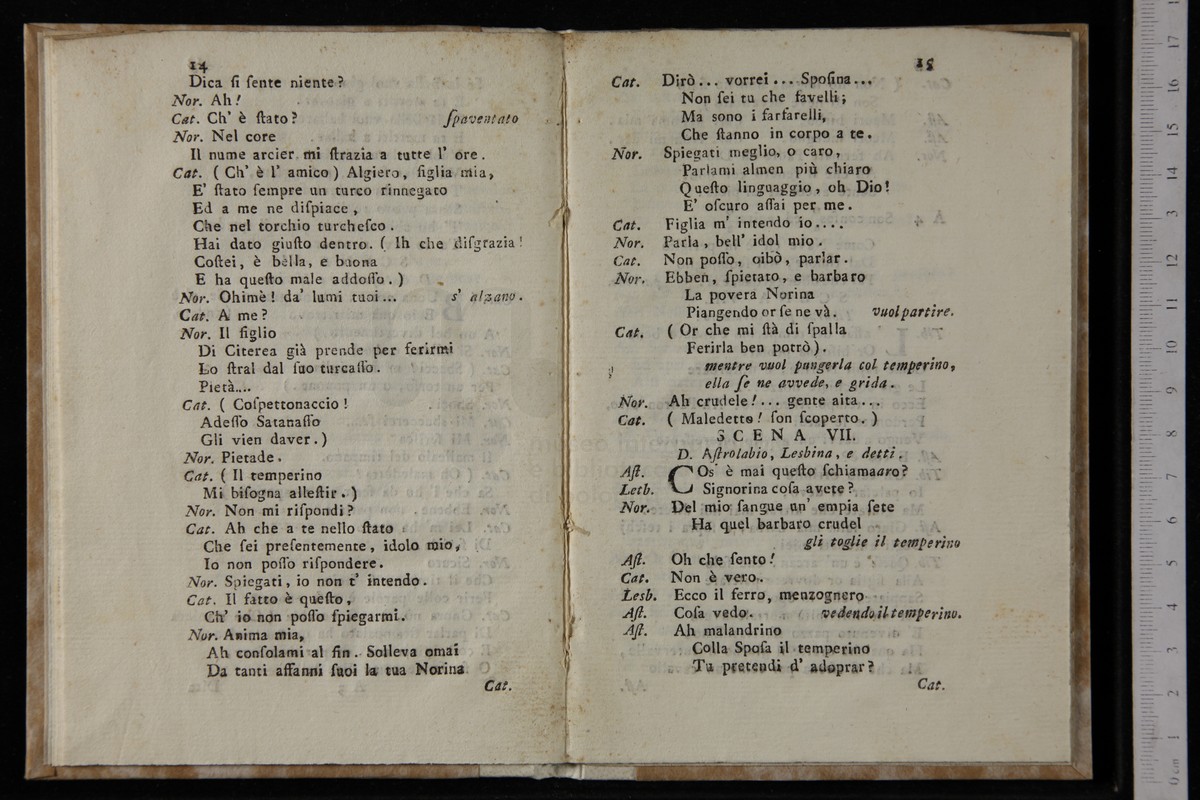 14
Dica ſi ſente niente?
Nor. Ah!
Cat. Ch' è ſtato? ſpaventato
Nor. Nel core
Il nume arcier mi ſtrazia a tutte l' ore.
Cat. ( Ch' è l' amico ) Algiero, figlia mia,
E' ſtato ſempre un turco rinnegato
Ed a me ne diſpiace,
Che nel torchio turcheſco.
Hai dato giuſto dentro. ( Ih che diſgrazia!
Coſtei, è bella, e buona
E ha queſto male addoſſo. )
Nor. Ohimè! da' lumi tuoi... s' alzano.
Cat. A me?
Nor. Il figlio
Di Citerea già prende per ferirmi
Lo ſtral dal ſuo turcaſſo.
Pietà....
Cat. ( Coſpettonaccio!
Adeſſo Satanaſſo
Gli vien daver. )
Nor. Pietade.
Cat. ( Il temperino
Mi biſogna alleſtir. )
Nor. Non mi riſpondi?
Cat. Ah che a te nello ſtato
Che ſei preſentemente, idolo mio,
Io non poſſo riſpondere.
Nor. Spiegati, io non t' intendo.
Cat. Il fatto è queſto,
Ch' io non poſſo ſpiegarmi.
Nor. Anima mia,
Ah conſolami al fin. Solleva omai
Da tanti affanni ſuoi la tua Norina
Cat.
15
Cat. Dirò... vorrei... Spoſina...
Non ſei tu che favelli;
Ma sono i farfarelli,
Che ſtanno in corpo a te.
Nor. Spiegati meglio, o caro,
Parlami almen più chiaro
Queſto linguaggio, oh Dio!
E' oſcuro aſſai per me.
Cat. Figlia m' intendo io....
Nor. Parla, bell' idol mio.
Cat. Non poſſo, oibò, parlar.
Nor. Ebben, ſpietato, e barbaro
La povera Norina
Piangendo or ſe ne và. vuol partire.
Cat. ( Or che mi ſtà di ſpalla
Ferirla ben potrò ).
mentre vuol pungerla col temperino,
ella ſe ne avvede, e grida.
Nor. Ah crudele!... gente aita...
Cat. ( Maledetto! ſon ſcoperto. )
SCENA VII.
D. Aſtrolabio, Lesbina, e detti.
Aſt. COs' è mai queſto ſchiamaaro?
Letb. Signorina coſa avete?
Nor. Del mio ſangue un' empia ſete
Ha quel barbaro crudel
gli toglie il temperino
Aſt. Oh che ſento!
Cat. Non è vero.
Lesb. Ecco il ferro, menzognero
Aſt. Coſa vedo. vedendo il temperino.
Aſt. Ah malandrino
Colla Spoſa il temperino
Tu pretendi d' adoprar?
Cat.